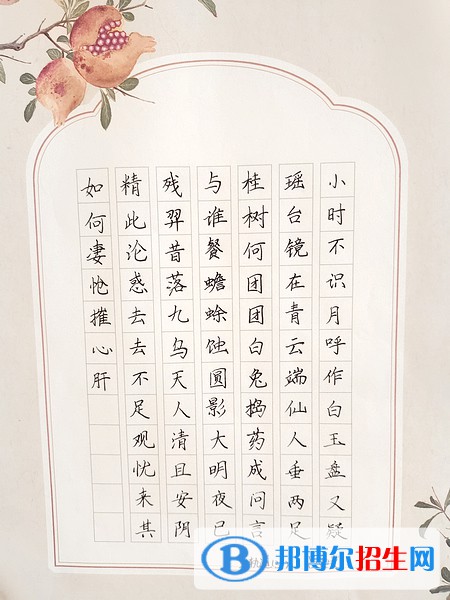 小时不识月呼作白玉盘又疑
瑶台镜在青云端仙人垂两足
桂树何团团白兔捣药成问言
与谁餐蟾蜍蚀圆影大明夜已
残羿昔落九乌天人清且安阴
精此沦惑去去不足观忧来其
如何凄怆摧心肝
B 邦博尔招生网